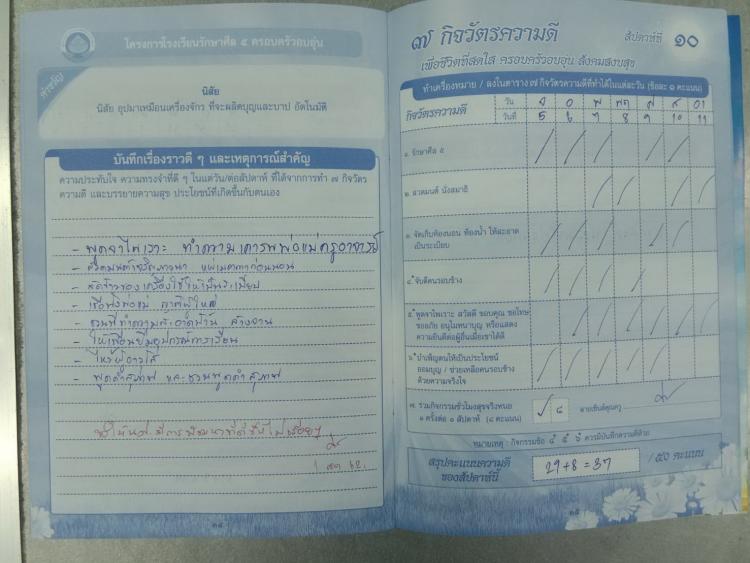 โครงการโรงเรียนรักษาศีล ๕ ครอบครัวอบอุ่น
คำขวัญ
นิสัย
นิสัย อุปมาเหมือนเครื่องจักร ที่จะผลิตบุญและบาป อัตโนมัติ
บันทึกเรื่องราวดี ๆ และเหตุการณ์สำคัญ
ความประทับใจ ความทรงจำที่ดี ๆ ในแต่ละวัน/ต่อสัปดาห์ ที่ได้จากการทำ ๗ กิจวัตร
ความดี และบรรยายความสุข ประโยชน์ที่เกิดขึ้นกับตนเอง
- พูดจาไพเราะ ทำความเคารพพ่อแม่ครูอาจารย์
- สวดมนต์เจริญภาวนา แผ่เมตตาก่อนนอน
- จัดข้าวของเครื่องใช้ให้เป็นระเบียบ
- เชื่อฟังพ่อแม่ ญาติผู้ใหญ่
- ทำความสะอาดบ้าน ล้างจาน
- ให้เพื่อนยืมอุปกรณ์การเรียน
- ไหว้ผู้อาวุโส
- พูดคำสุภาพ และชวนพูดคำสุภาพ
๓๔
๗ กิจวัตรความดี
สัปดาห์ที่ ๑๐
เพื่อชีวิตที่สดใส ครอบครัวอบอุ่น สังคมสงบสุข
ทำเครื่องหมาย / ลงในตาราง ๗ กิจวัตรความดีที่ทำได้ในแต่ละวัน (ข้อละ ๑ คะแนน)
กิจวัตรความดี
วัน จ อ พ พฤ ศ ส อา
วันที่ 5 6 7 8 9 10 11
๑. รักษาศีล ๕
๒. สวดมนต์ นั่งสมาธิ
๓. จัดเก็บห้องนอน ห้องน้ำ ให้สะอาด
เป็นระเบียบ
๔. จับดีคนรอบข้าง
๕. พูดจาไพเราะ สวัสดี ขอบคุณ ขอโทษ
ขออภัย อนุโมทนาบุญ หรือแสดง
ความยินดีต่อผู้อื่นเมื่อเขาได้ดี
๖. บำเพ็ญตนให้เป็นประโยชน์
ออมบุญ / ช่วยเหลือคนรอบข้าง
ด้วยความจริงใจ
๗. ร่วมกิจกรรมชั่วโมงสุขจริงหนอ
๑ ครั้งต่อ ๑ สัปดาห์ (๘ คะแนน)
๘
ลายเซ็นต์คุณครู
หมายเหตุ : กิจกรรมข้อ ๔ ๕ ๖ ควรมีบันทึกความดีด้วย
สรุปคะแนนความดี
ของสัปดาห์นี้
29+8 = 37
/ ๕๐ คะแนน
๓๕